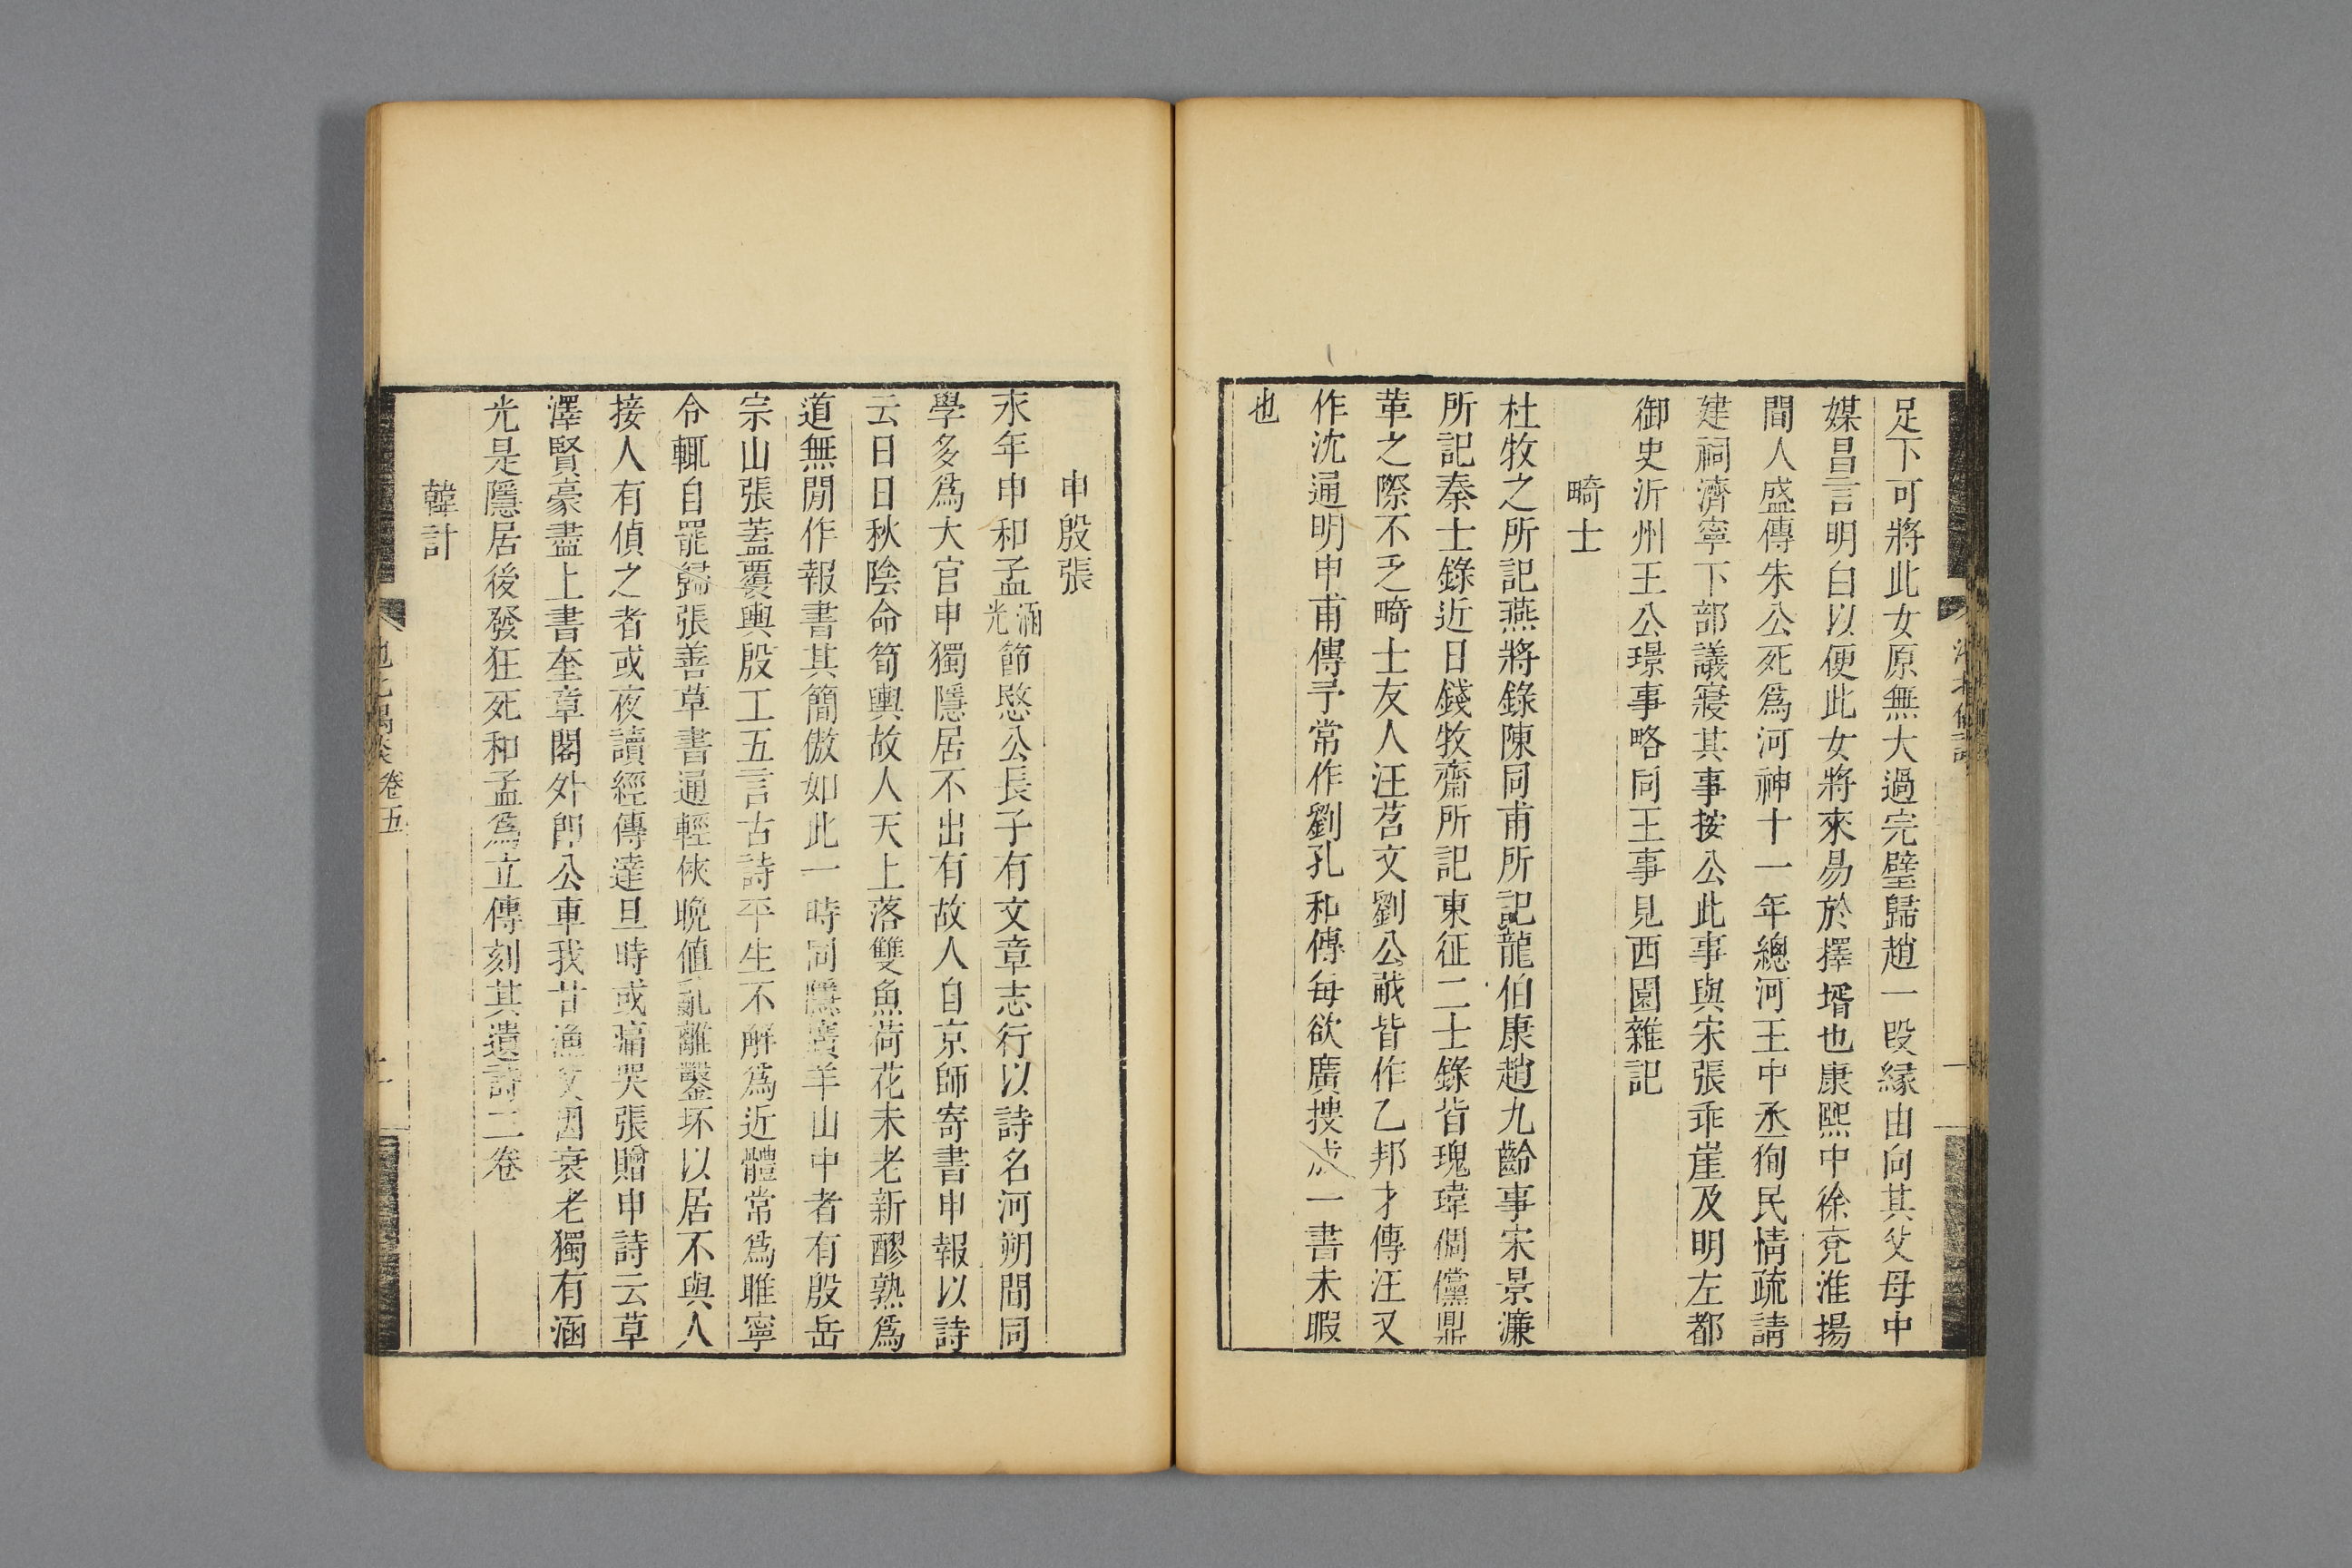 足下可將此女原無大過完璧歸趙一段緣由向其父母中
媒昌言明白以便此女將來易於擇壻也康熙中徐兗淮揚
間人盛傳朱公死爲河神十一年總河王中丞狥民情疏請
建祠濟寧下部議寢其事按公此事與宋張乖崖及明左都
御史沂州王公璟事略同王事見西園雜記
畸士
杜牧之所記燕將錄陳同甫所記龍伯康趙九齡事宋景濂
所記秦士錄近日錢牧齋所記東征二士錄皆瑰瑋倜儻鼎
革之際不乏畸士友人汪苕文劉公㦷皆作乙邦才傳汪又
作沈通明申甫傳予常作劉孔和傳每欲廣搜成一書未暇
也
申殷張
永年申和孟涵光節愍公長子有文章志行以詩名河朔間同
學多爲大官申獨隱居不出有故人自京師寄書申報以詩
云日日秋陰命筍輿故人天上落雙魚荷花未老新醪熟爲
道無閒作報書其簡傲如此一時同隱廣羊山中者有殷岳
宗山張蓋覆輿殷工五言古詩平生不解爲近體常爲睢寧
令輒自罷歸張善草書通輕俠晚值亂離鑿坏以居不與人
接人有偵之者或夜讀經傳達旦時或痛哭張贈申詩云草
澤賢豪盡上書奎章閣外卽公車我甘漁父因衰老獨有涵
光是隱居後發狂死和孟爲立傳刻其遺詩二卷
韓計
池北偶談卷五